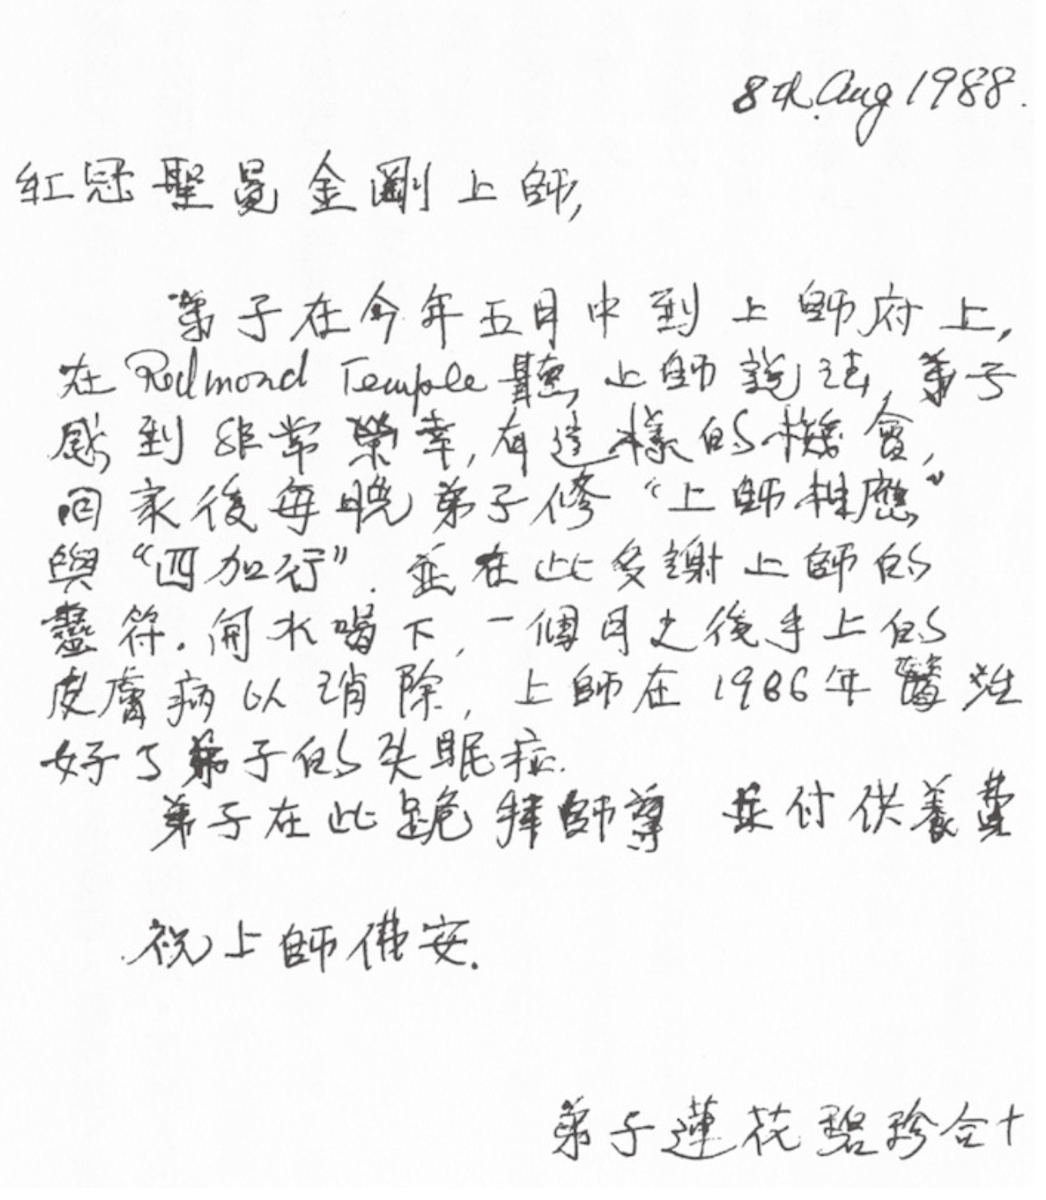 8th. Aug 1988.
紅冠聖冕金剛上師,
弟子在今年五月中到上師府上,
在 Redmond Temple 聽上師說法, 弟子
感到非常榮幸, 有這樣的機會,
回家後每晚弟子修 “上師相應”
與 “四加行”. 並在此多謝上師的
靈符. 開水喝下, 一個月之後手上的
皮膚病以消除, 上師在 1986年醫
好了弟子的失眠症.
弟子在此跪拜師尊 並付供養費
祝上師佛安.
弟子蓮花碧珍合十